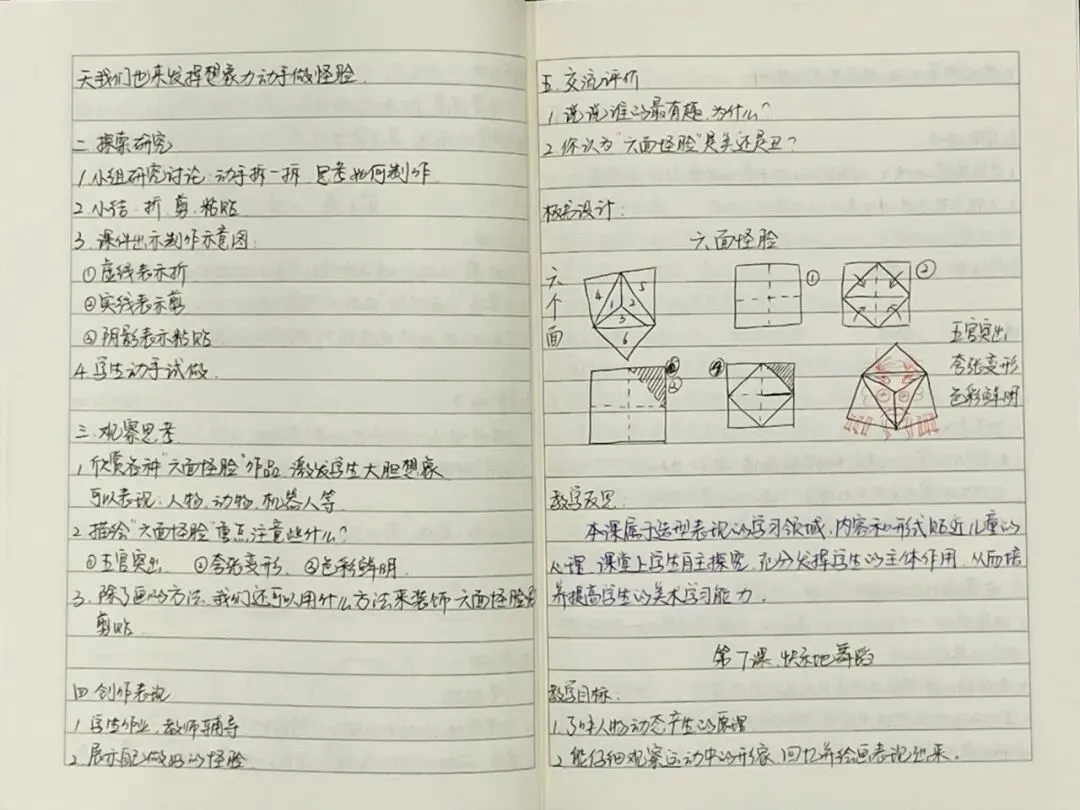 天我们也来发挥想象力动手做怪脸.
二 探索研究
1.小组研究讨论:动手拆一拆 思考如何制作
2.小结:折 剪.粘贴
3.课件出示制作示意图:
①虚线表示折
②实线表示剪
③阴影表示粘贴
4.学生动手试做.
三.观察思考
1.欣赏各种"六面怪脸"作品,激发学生大胆想象
可以表现:人物,动物,机器人等
2.描绘"六面怪脸"重点注意些什么?
①五官突出 ②夸张变形. ③色彩鲜明.
3.除了画的方法,我们还可以用什么方法来装饰六面怪脸
剪贴.
四 创作表现
1.学生作业,教师辅导
2.展示自己做好的怪脸
五.交流评价
1.说说谁的最有趣,为什么?
2.你认为"六面怪脸"是美还是丑?
板书设计:
六面怪脸
六个面
4 1 2 5 3 6
①
②
③
④
五官突出
夸张变形
色彩鲜明
教学反思:
本课属于造型表现的学习领域,内容和形式贴近儿童的
心理,课堂上学生自主探究,充分发挥学生的主体作用,从而培
养提高学生的美术学习能力.
第7课.快乐地舞蹈
教学目标:
1.了解人物动态产生的原理
2.能仔细观察运动中的形象,回忆并绘画表现出来.